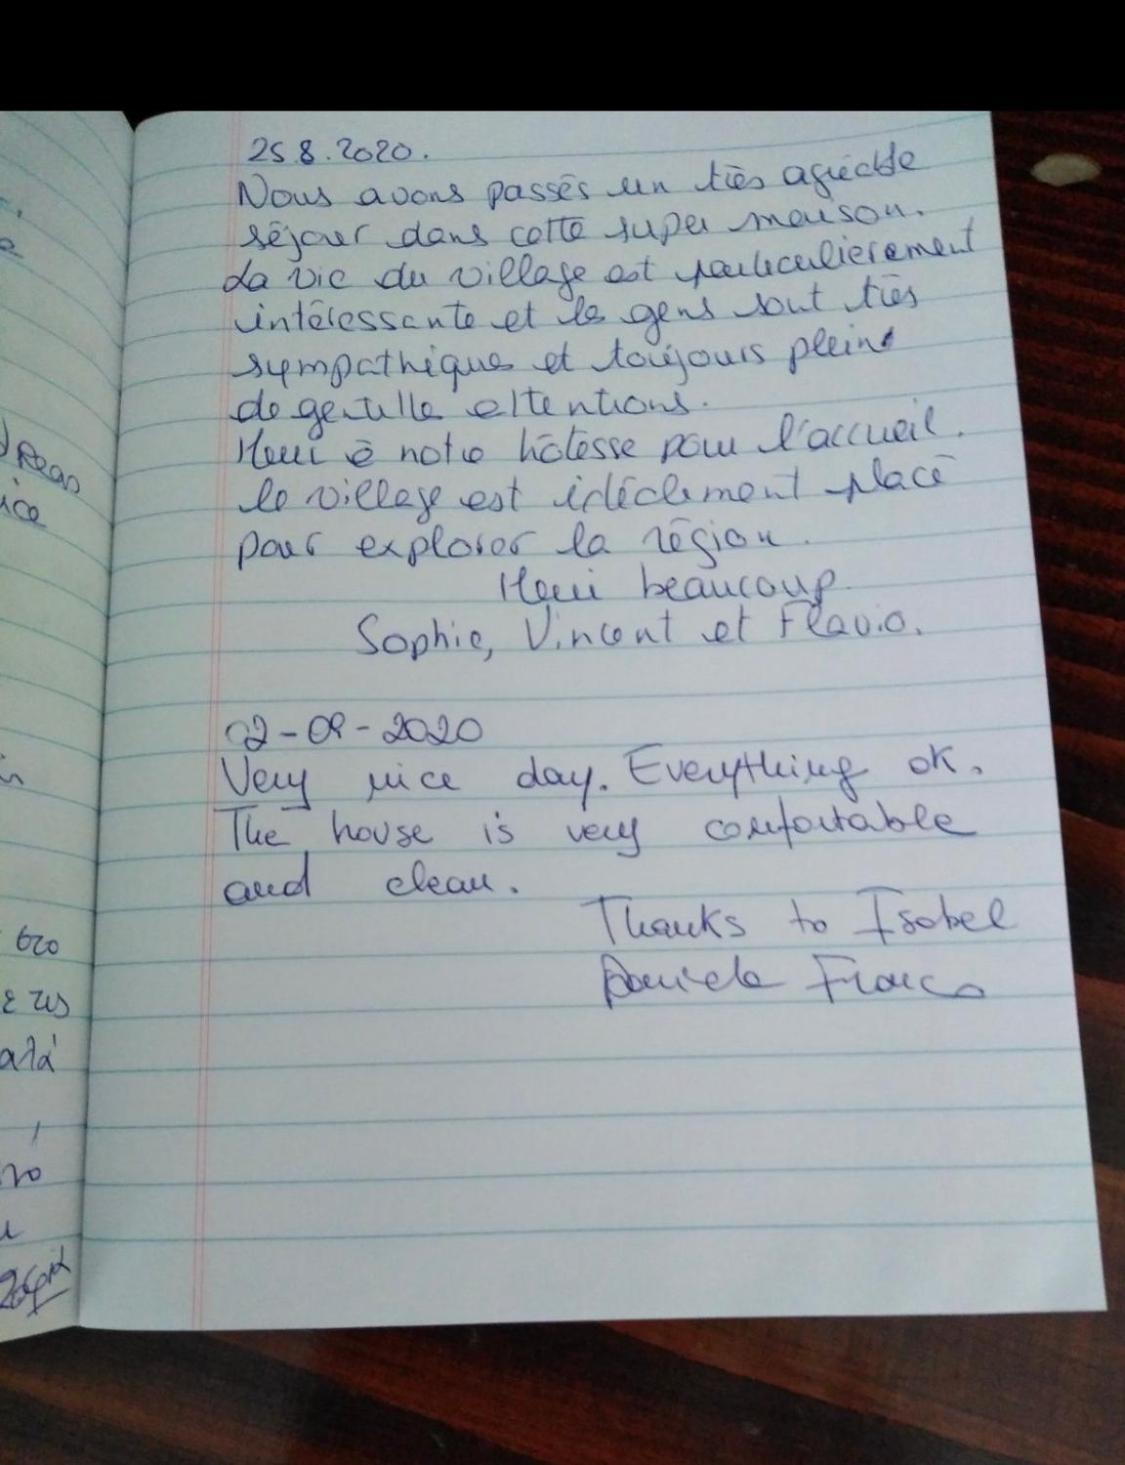 25.8.2020.
Nous avons passés un très agréable
séjour dans cette super maison.
La vie du village est particulièrement
intéressante et les gens sont très
sympathiques et toujours pleins
de gentilles attentions.
Merci à notre hôtesse pour l'accueil.
le village est idéalement placé
pour explorer la région.
Merci beaucoup
Sophie, Vincent et Flavio.
02-09-2020
Very nice day. Everything ok.
The house is very comfortable
and clean.
Thanks to Isabel
Daniela Franco
στο
ε τις
αλά